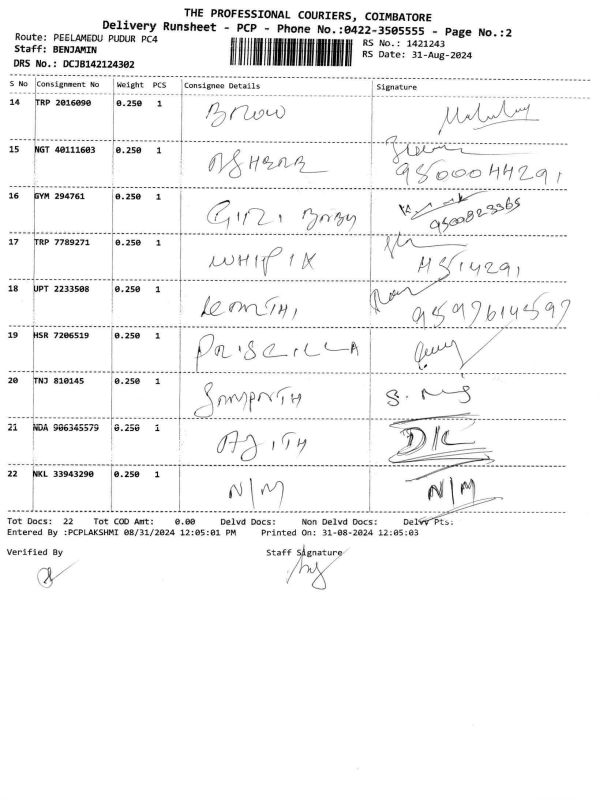 THE PROFESSIONAL COURIERS, COIMBATORE
Delivery Runsheet - PCP - Phone No.:0422-3505555 - Page No.:2
Route: PEELAMEDU PUDUR PC4
RS No.: 1421243
Staff: BENJAMIN
RS Date: 31-Aug-2024
DRS No.: DCJB142124302
S No Consignment No Weight PCS Consignee Details Signature
14 TRP 2016090 0.250 1
15 NGT 40111603 0.250 1
9500044291
16 GYM 294761 0.250 1 GIRI BABY
9500823365
17 TRP 7789271 0.250 1 WHIPIX
18 UPT 2233508 0.250 1
9597614597
19 HSR 7206519 0.250 1 PRISCILLA
20 TNJ 810145 0.250 1 SAMPATH
21 NDA 906345579 0.250 1 AJITH D/C
22 NKL 33943290 0.250 1 N/M N/M
Tot Docs: 22 Tot COD Amt: 0.00 Delvd Docs: Non Delvd Docs: Delvv Pts:
Entered By :PCPLAKSHMI 08/31/2024 12:05:01 PM Printed On: 31-08-2024 12:05:03
Verified By Staff Signature